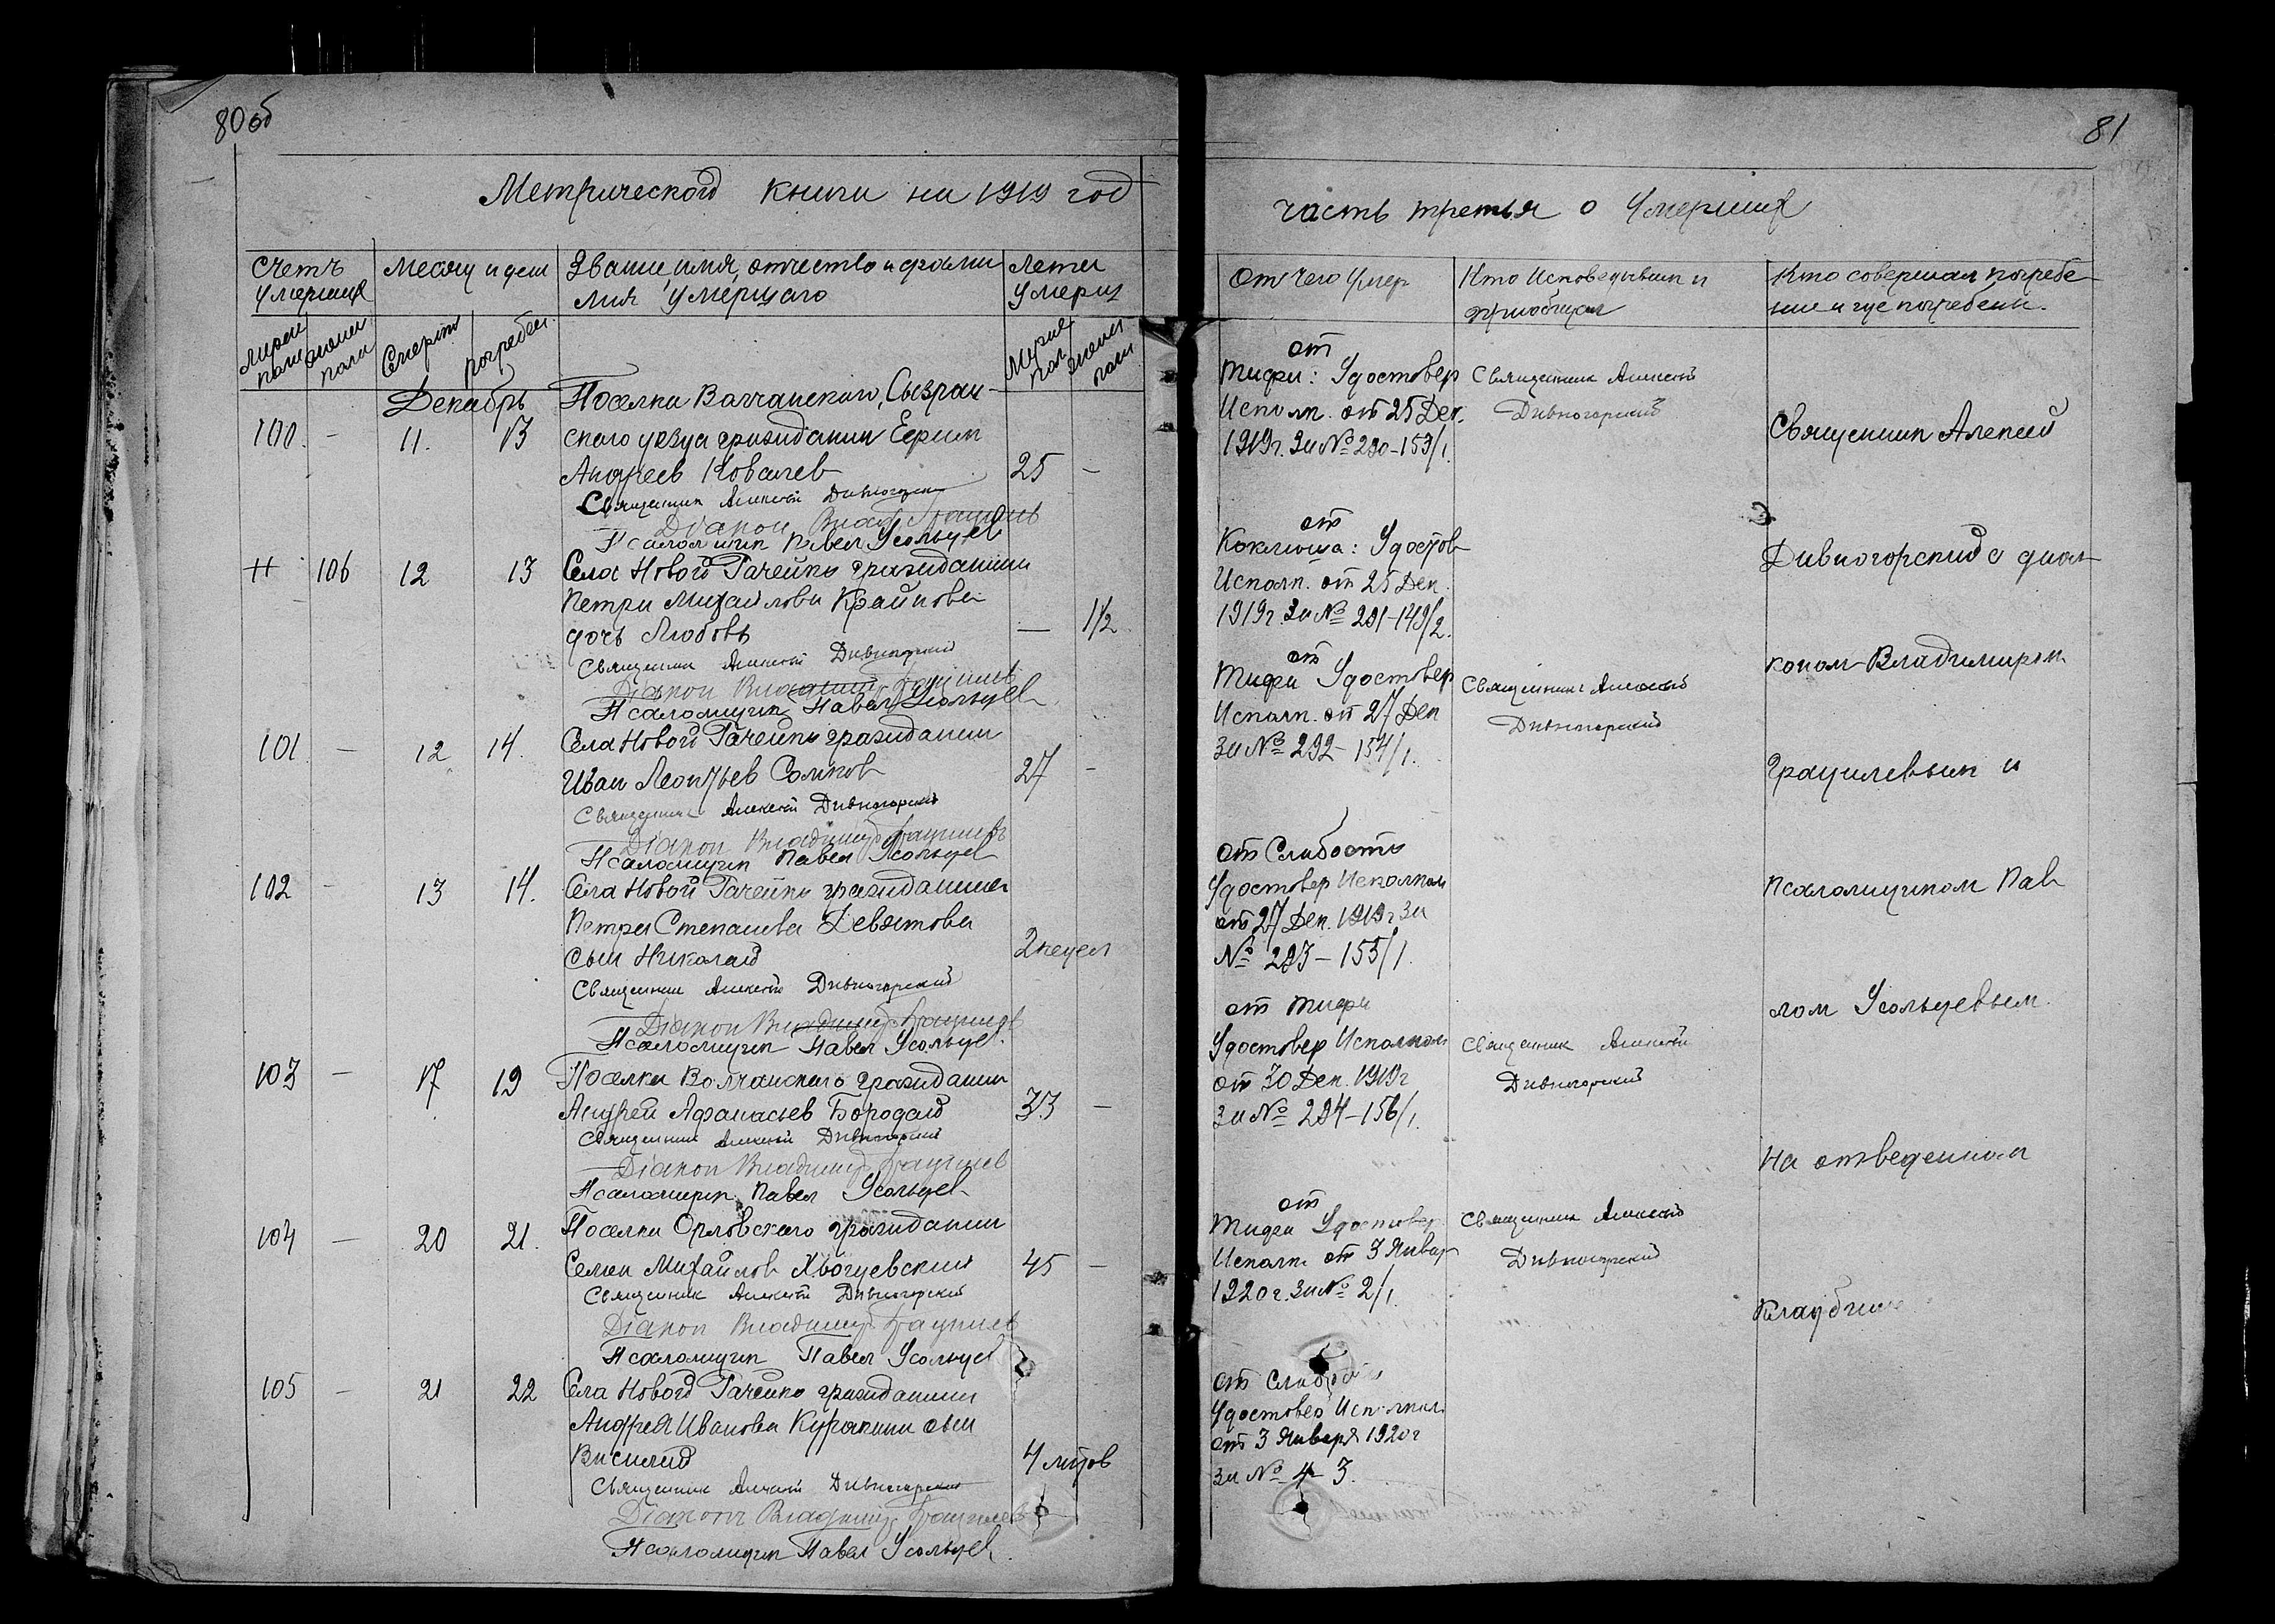 80об
Метрической книги на 1919 год
Счетъ умерших
Месяц и день
Звание, имя, отчество и фами
лия умершаго
Лета умерш
мужск пола
женск пола
Смерти
погребен.
Мужс пол
женск пол
Декабрь
Поселка Волчанского, Сызран-
100. - 11. 13 ского уезда гражданин Ефим
Андреев Ковалев 25 -
Священник Алексей Дивногорский
Диакон Влад. Грацилевъ
Псаломщик Павел Усольцев
H 106 12 13 Села Новой Рачейки гражданина
Петра Михайлова Крайнова
дочь Любовь — 1/2
Священник Алексей Дивногорский
Диакон Владимир Грацилев
Псаломщик Павел Усольцев
101 - 12 14. Села Новой Рачейки гражданин
Иван Леонтьев Сомков 27 -
Священник Алексей Дивногорский
Диакон Владимир Грацилевъ
Псаломщик Павел Усольцев
102 - 13 14. Села Новой Рачейки гражданина
Петра Степанова Девятова
сын Николай 2 недел
Священник Алексей Дивногорский
Диакон Владимир Грацилев
Псаломщик Павел Усольцев.
103 - 17 19 Поселка Волчанского гражданин
Андрей Афанасьев Бородай 33 -
Священник Алексей Дивногорский
Диакон Владимир Грацилев
Псаломщик Павел Усольцев
104 - 20 21. Поселка Орловского гражданин
Семен Михайлов 45 -
Священник Алексей Дивногорский
Диакон Владимир Грацилев
Псаломщик Павел Усольцев
105 - 21 22 Села Новой Рачейки гражданина
Андрея Иванова Куракина сын
Василий 4 лет
Священник Алексей Дивногорский
Диаконъ Владимир Грацилев
Псаломщик Павел Усольцев.
81
часть третья о Умерших
От чего Умер
Кто Исповедывал и
приобщал
Кто совершал погребе-
ние и где погребены.
от
тифа: Удостовер
Исполк. от 25 Дек.
1919г. За № 290-153/1.
Священник Алексей
Дивногорский
от
Коклюша: Удостов
Исполк. от 25 Дек.
1919г За № 291-149/2.
от
Тифа Удостовер
Исполк. от 27 Дек
За № 292-154/1.
Священник Алексей
Дивногорский
от Слабости
Удостовер Исполком
от 27 Дек. 1919г За
№ 293-155/1.
от тифа
Удостовер Исполком
от 30 Дек. 1919г
За № 294-156/1.
Священник Алексей
Дивногорский
от
Тифа Удостовер.
Исполк. от 3 Январ
1920г. За № 2/1.
Священник Алексей
Дивногорский
от Слабости
Удостовер Исполком.
от 3 Января 1920г
за № 4-3.
Священник Алексей
Дивногорский с диа-
коном Владимиром
Грацилевым и
псаломщиком Пав
лом Усольцевым.
На отведенном
кладбище